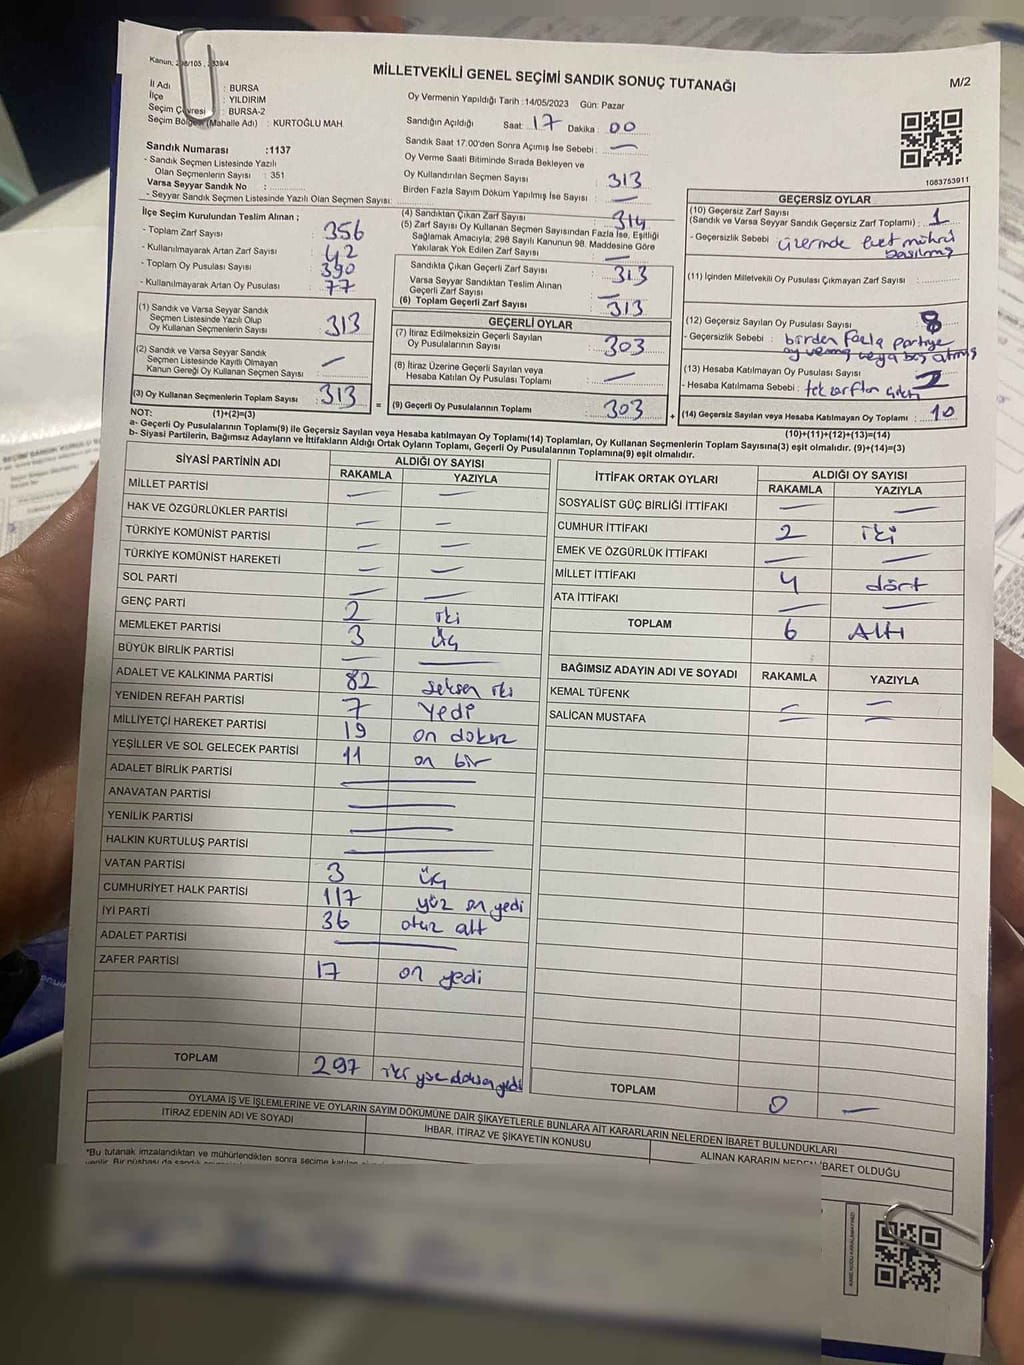 Kanun: 298/105, 2839/4
MİLLETVEKİLİ GENEL SEÇİMİ SANDIK SONUÇ TUTANAĞI
M/2
İl Adı : BURSA
İlçe : YILDIRIM
Seçim Çevresi : BURSA-2
Seçim Bölgesi (Mahalle Adı) : KURTOĞLU MAH.
Oy Vermenin Yapıldığı Tarih :14/05/2023 Gün: Pazar
Sandığın Açıldığı Saat: 17 Dakika : 00
Sandık Saat 17:00'den Sonra Açmış İse Sebebi : —
Oy Verme Saati Bitiminde Sırada Bekleyen ve
Oy Kullandırılan Seçmen Sayısı : 313
Birden Fazla Sayım Döküm Yapılmış İse Sayısı : —
1083753911
Sandık Numarası :1137
- Sandık Seçmen Listesinde Yazılı
Olan Seçmenlerin Sayısı : 351
Varsa Seyyar Sandık No :
- Seyyar Sandık Seçmen Listesinde Yazılı Olan Seçmen Sayısı:
İlçe Seçim Kurulundan Teslim Alınan ;
- Toplam Zarf Sayısı : 356
- Kullanılmayarak Artan Zarf Sayısı : 42
- Toplam Oy Pusulası Sayısı : 390
- Kullanılmayarak Artan Oy Pusulası : 77
(1) Sandık ve Varsa Seyyar Sandık
Seçmen Listesinde Yazılı Olup
Oy Kullanan Seçmenlerin Sayısı : 313
(2) Sandık ve Varsa Seyyar Sandık
Seçmen Listesinde Kayıtlı Olmayan
Kanun Gereği Oy Kullanan Seçmen Sayısı : —
(3) Oy Kullanan Seçmenlerin Toplam Sayısı : 313 =
(4) Sandıktan Çıkan Zarf Sayısı : 314
(5) Zarf Sayısı Oy Kullanan Seçmen Sayısından Fazla İse, Eşitliği
Sağlamak Amacıyla, 298 Sayılı Kanunun 98. Maddesine Göre
Yakılarak Yok Edilen Zarf Sayısı : —
Sandıkta Çıkan Geçerli Zarf Sayısı : 313
Varsa Seyyar Sandıktan Teslim Alınan
Geçerli Zarf Sayısı : —
(6) Toplam Geçerli Zarf Sayısı : 313
GEÇERLİ OYLAR
(7) İtiraz Edilmeksizin Geçerli Sayılan
Oy Pusulalarının Sayısı : 303
(8) İtiraz Üzerine Geçerli Sayılan veya
Hesaba Katılan Oy Pusulası Toplamı : —
(9) Geçerli Oy Pusulalarının Toplamı : 303 +
GEÇERSİZ OYLAR
(10) Geçersiz Zarf Sayısı
(Sandık ve Varsa Seyyar Sandık Geçersiz Zarf Toplamı) : 1
- Geçersizlik Sebebi : üzerinde evet mührü
basılmış
(11) İçinden Milletvekili Oy Pusulası Çıkmayan Zarf Sayısı :
(12) Geçersiz Sayılan Oy Pusulası Sayısı : 8
- Geçersizlik Sebebi : birden fazla partiye
oy verme veya boş atmış
(13) Hesaba Katılmayan Oy Pusulası Sayısı : 2
- Hesaba Katılmama Sebebi : tek zarftan çıkan
(14) Geçersiz Sayılan veya Hesaba Katılmayan Oy Toplamı : 10
NOT: (1)+(2)=(3)
(10)+(11)+(12)+(13)=(14)
a- Geçerli Oy Pusulalarının Toplamı(9) ile Geçersiz Sayılan veya Hesaba katılmayan Oy Toplamı(14) Toplamları, Oy Kullanan Seçmenlerin Toplam Sayısına(3) eşit olmalıdır. (9)+(14)=(3)
b- Siyasi Partilerin, Bağımsız Adayların ve İttifakların Aldığı Ortak Oyların Toplamı, Geçerli Oy Pusulalarının Toplamına(9) eşit olmalıdır.
SİYASİ PARTİNİN ADI ALDIĞI OY SAYISI
RAKAMLA YAZIYLA
MİLLET PARTİSİ — —
HAK VE ÖZGÜRLÜKLER PARTİSİ — —
TÜRKİYE KOMÜNİST PARTİSİ — —
TÜRKİYE KOMÜNİST HAREKETİ — —
SOL PARTİ — —
GENÇ PARTİ 2 iki
MEMLEKET PARTİSİ 3 üç
BÜYÜK BİRLİK PARTİSİ — —
ADALET VE KALKINMA PARTİSİ 82 seksen iki
YENİDEN REFAH PARTİSİ 7 Yedi
MİLLİYETÇİ HAREKET PARTİSİ 19 on dokuz
YEŞİLLER VE SOL GELECEK PARTİSİ 11 on bir
ADALET BİRLİK PARTİSİ —
ANAVATAN PARTİSİ —
YENİLİK PARTİSİ —
HALKIN KURTULUŞ PARTİSİ —
VATAN PARTİSİ 3 üç
CUMHURİYET HALK PARTİSİ 117 yüz on yedi
İYİ PARTİ 36 otuz altı
ADALET PARTİSİ —
ZAFER PARTİSİ 17 on yedi
TOPLAM 297 iki yüz doksan yedi
İTTİFAK ORTAK OYLARI ALDIĞI OY SAYISI
RAKAMLA YAZIYLA
SOSYALİST GÜÇ BİRLİĞİ İTTİFAKI — —
CUMHUR İTTİFAKI 2 iki
EMEK VE ÖZGÜRLÜK İTTİFAKI — —
MİLLET İTTİFAKI 4 dört
ATA İTTİFAKI — —
TOPLAM 6 Altı
BAĞIMSIZ ADAYIN ADI VE SOYADI RAKAMLA YAZIYLA
KEMAL TÜFENK — —
SALİCAN MUSTAFA — —
TOPLAM 0 —
OYLAMA İŞ VE İŞLEMLERİNE VE OYLARIN SAYIM DÖKÜMÜNE DAİR ŞİKAYETLERLE BUNLARA AİT KARARLARIN NELERDEN İBARET BULUNDUKLARI
İTİRAZ EDENİN ADI VE SOYADI İHBAR, İTİRAZ VE ŞİKAYETİN KONUSU ALINAN KARARIN NEDEN İBARET OLDUĞU
*Bu tutanak imzalandıktan ve mühürlendikten sonra seçime katılan